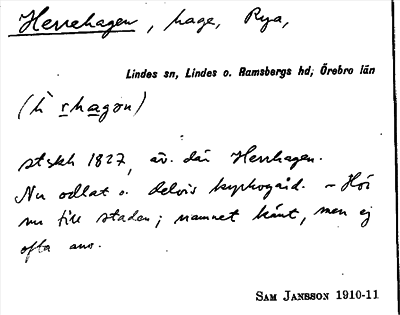 Herrehagen, hage, Rya,
Lindes sn, Lindes o. Ramsbergs hd; Örebro län
(hǽrhagɔn)
stskh 1827, äv. där Herrhagen.
Nu odlat o. delvis kyrkogård. – Hör
nu till staden; namnet känt, men ej
ofta anv.
SAM JANSSON 1910-11